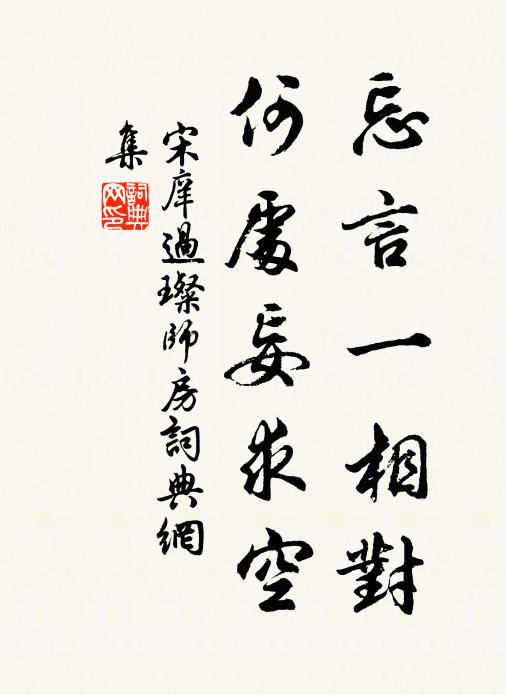 忘言一相對
何處妄求空
宋庠過璨師房詞典網
集
詞典网印